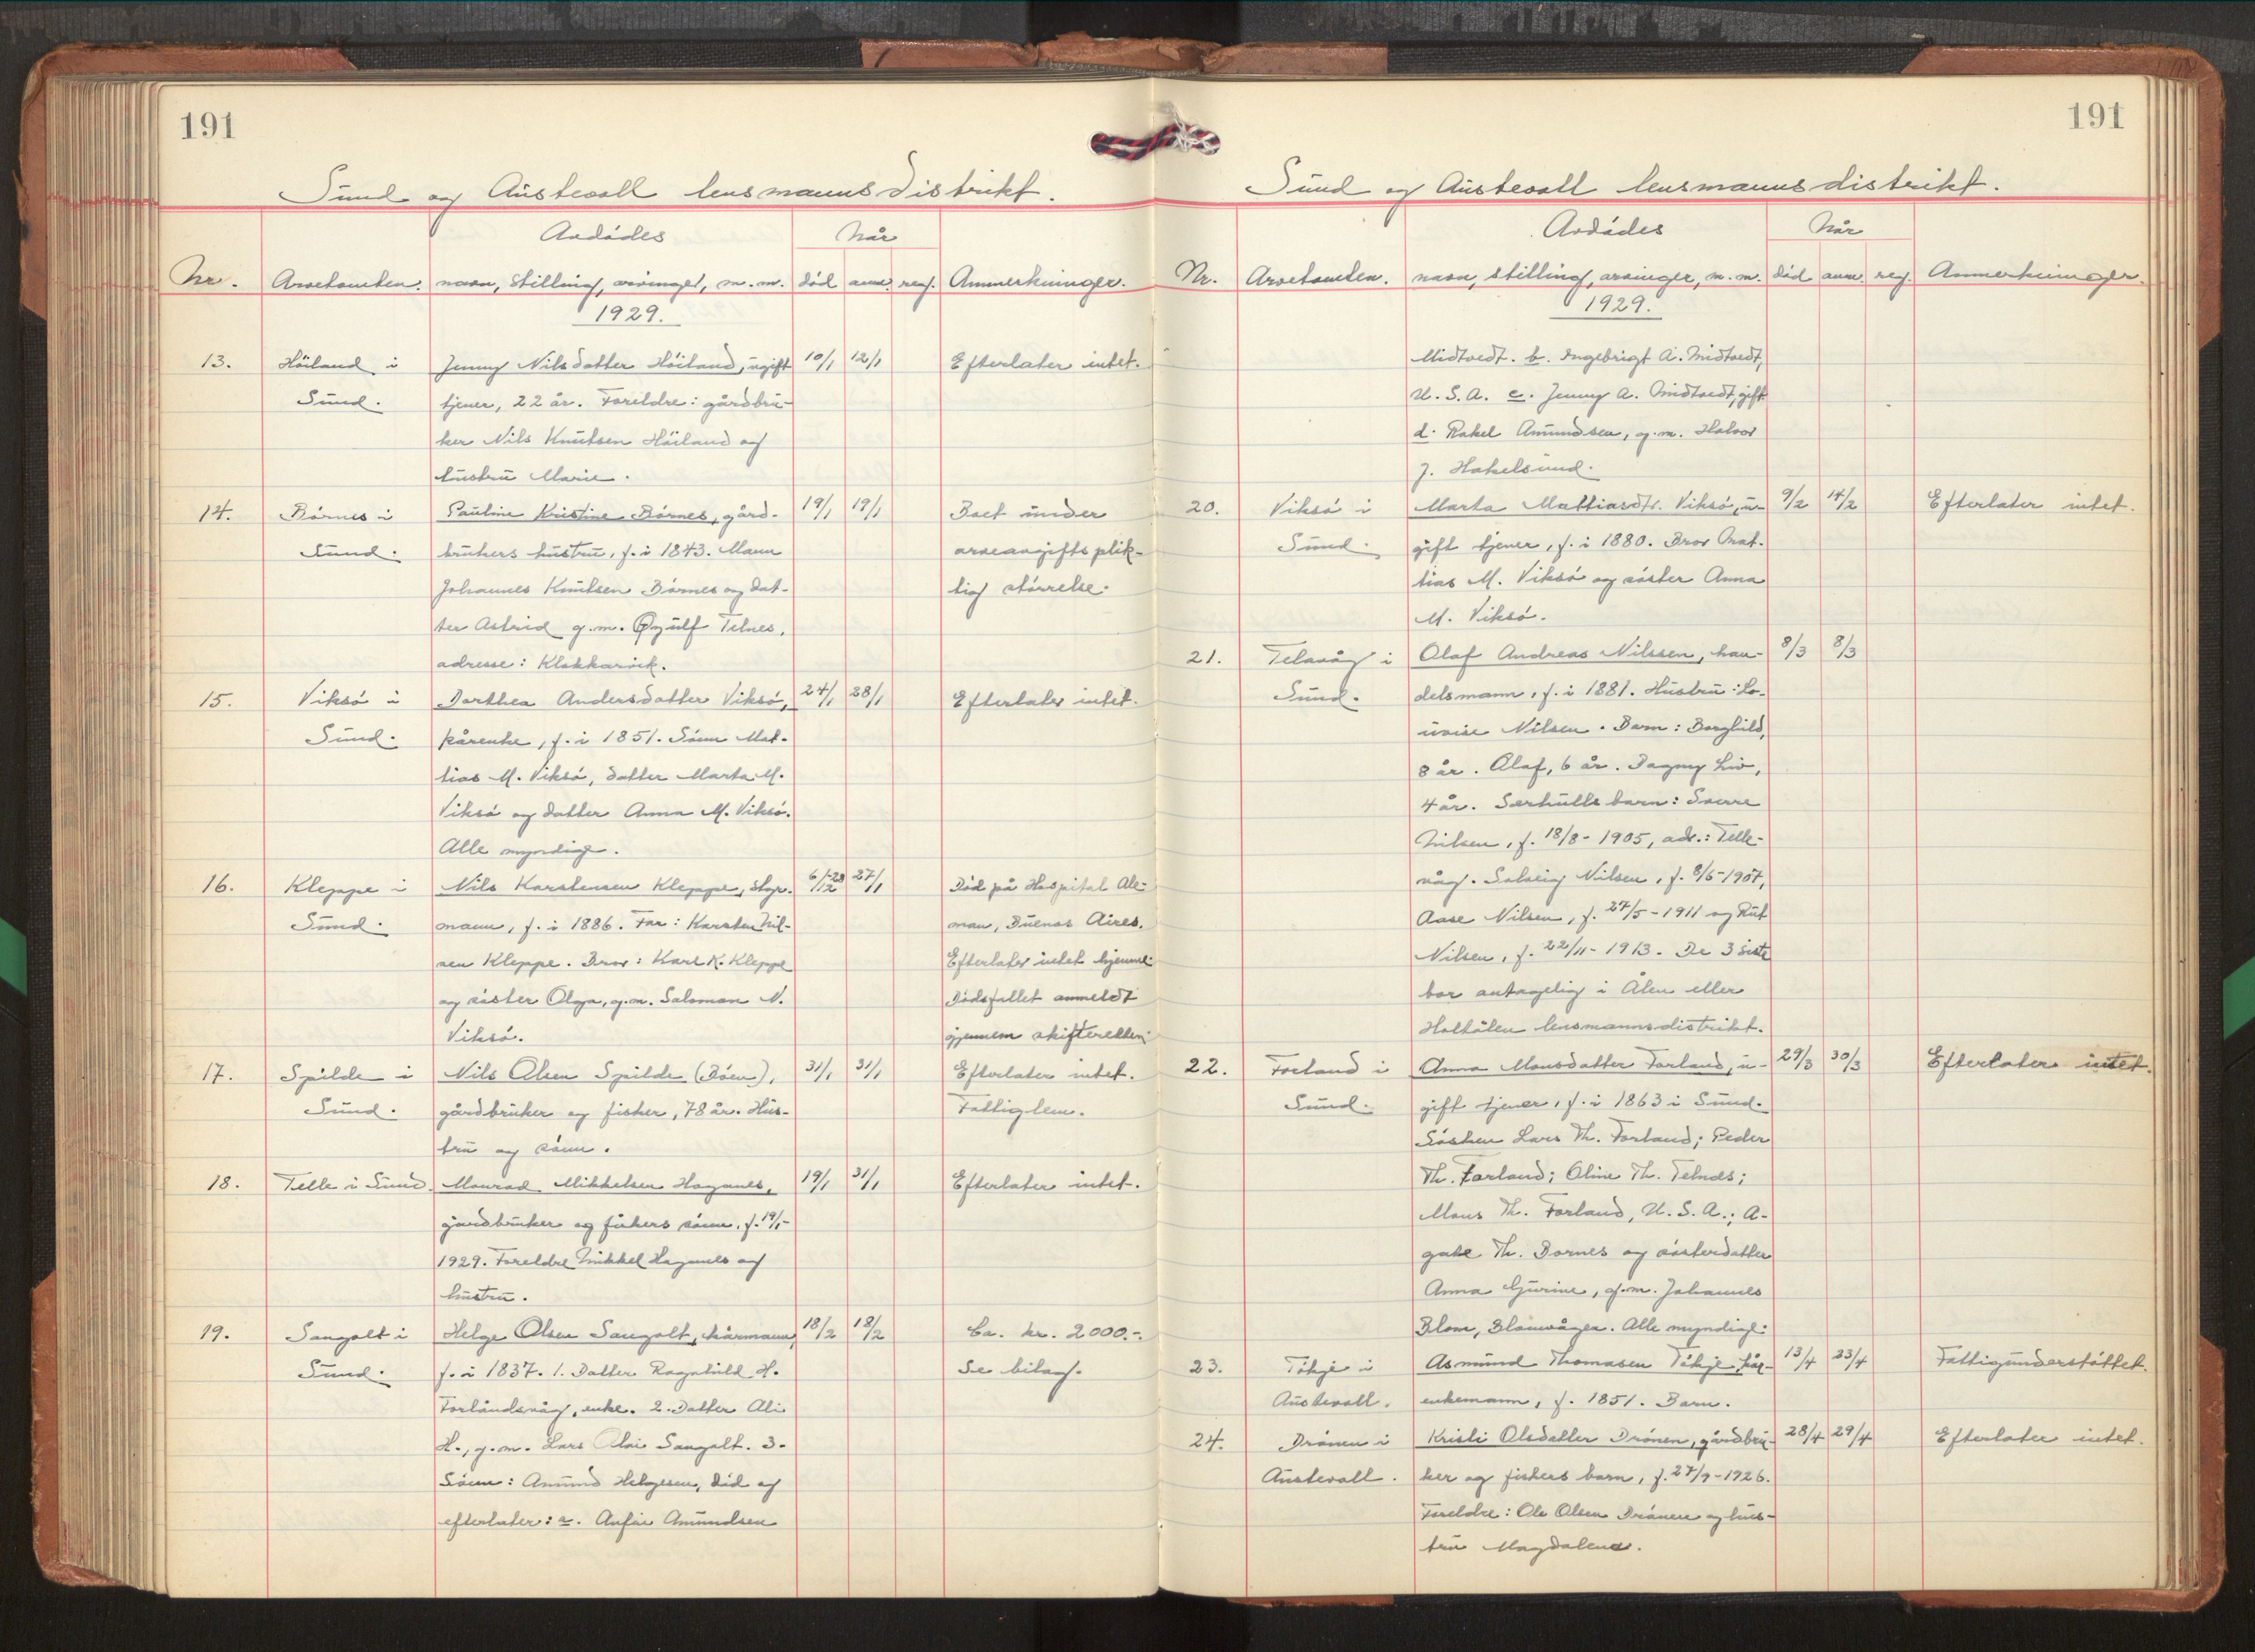 191
Sund og Austevoll lensmannsdistrikt.
Avdødes
Når
Nr.
Arvetomten.
navn, stilling, arvinger, m.m.
død
anm.
reg.
Anmerkninger.
1929.
13.
Höiland i
Sund.
Jenny Nilsdatter Höiland, ugift
tjener, 22 år. Foreldre: gårdbru-
ker Nils Knutsen Höiland og
hustru Marie.
10/1
12/1
Efterlater intet.
14.
Börnes i
Sund.
Pauline Kristine Börnes, gård-
brukers hustru, f. i 1843. Mann
Johannes Knutsen Börnes og dat-
ter Astrid g.m. Øzulf Telnes,
adresse: Klokkarvik.
19/1
19/1
Boet under
arveavgiftsplik-
tig störrelse.
15.
Viksö i
Sund.
Dorthea Andersdatter Viksö,
kårenke, f. i 1851. Sönn Mat-
tias M. Viksö, datter Marta M.
Viksö og datter Anna M. Viksö.
Alle myndige.
24/1
28/1
Efterlater intet.
16.
Kleppe i
Sund.
Nils Karstensen Kleppe, styr-
mann, f. i 1886. Far: Karsten Nil-
sen Kleppe. Bror: Karl K. Kleppe
og söster Olga, g.m. Salomon N.
Viksö.
6/12-28
27/1
Död på Hospital Ale-
man, Buenos Aires.
Efterlater intet hjemme.
Dödsfallet anmeldt
gjennem skifteretten.
17.
Spilde i
Sund.
Nils Olsen Spilde (Böen),
gårdbruker og fisker, 78 år. Hus-
tru og sönn.
31/1
31/1
Efterlater intet.
Fattiglem.
18.
Telle i Sund.
Monrad Mikkelsen Haganes,
gårdbruker og fiskers sönn, f. 19/1-
1929. Foreldre Mikkel Haganes og
hustru.
19/1
31/1
Efterlater intet.
19.
Sangolt i
Sund.
Helge Olsen Sangolt, kårmann,
f. i 1837. 1. Datter Ragnhild H.
Forlandsvåg, enke. 2. Datter Ali
H., g.m. Lars Sangolt. 3.
Sönn: Amund Helgesen, död og
efterlater: a. Anfin Amundsen
18/2
18/2
Ca. kr. 2000.-
Se bilag.
191
Sund og Austevoll lensmannsdistrikt.
Avdødes
Når
Nr.
Arvetomten.
navn, stilling, arvinger, m.m.
död
anm.
reg.
Anmerkninger.
1929.
Midtvedt. b. Ingebrigt A. Midtvedt,
U.S.A. c. Jenny A. Midtvedt, gift
d. Rakel Amundsen, g.m. Halvor
J. Hakelsund.
20.
Viksö i
Sund.
Marta Mattiasdtr. Viksö, u-
gift tjener, f. i 1880. Bror Mat-
tias M. Viksö og söster Anna
M. Viksö.
9/2
14/2
Efterlater intet.
21.
Telavåg i
Sund.
Olaf Andreas Nilssen, han-
delsmann, f. i 1881. Hustru: Lo-
uvise Nilsen. Barn: Borghild,
8 år. Olaf, 6 år. Dagny Liv,
4 år. Særkulls barn: Sverre
Nilsen, f. 18/8-1905, adr.: Telle-
våg. Solveig Nilsen, f. 8/6-1907,
Aase Nilsen, f. 27/5-1911 og Rut
Nilsen, f. 22/11-1913. De 3 siste
bor antagelig i Ålen eller
Holtålen lensmannsdistrikt.
8/3
8/3
22.
Forland i
Sund.
Anna Monsdatter Forland, u-
gift tjener, f. i 1863 i Sund.
Sösken Lars Th. Forland; Peder
Th. Forland; Oline Th. Telnes;
Mons Th. Forland, U.S.A.; A-
gate Th. Bornes og sösterdatter
Anna Gurine, g.m. Johannes
Blom, Blomvågen. Alle myndige.
29/3
30/3
Efterlater intet.
23.
Tökje i
Austevoll.
Asmund Thomasen Tökje, kår-
enkemann, f. 1851. Barn.
13/4
23/4
Fattigunderstöttet.
24.
Drönen i
Austevoll.
Kristi Olsdatter Drönen, gårdbru-
ker og fiskers barn, f. 27/9-1926.
Foreldre: Ole Olsen Drönen og hus-
tru Magdalena.
28/4
29/4
Efterlater intet.